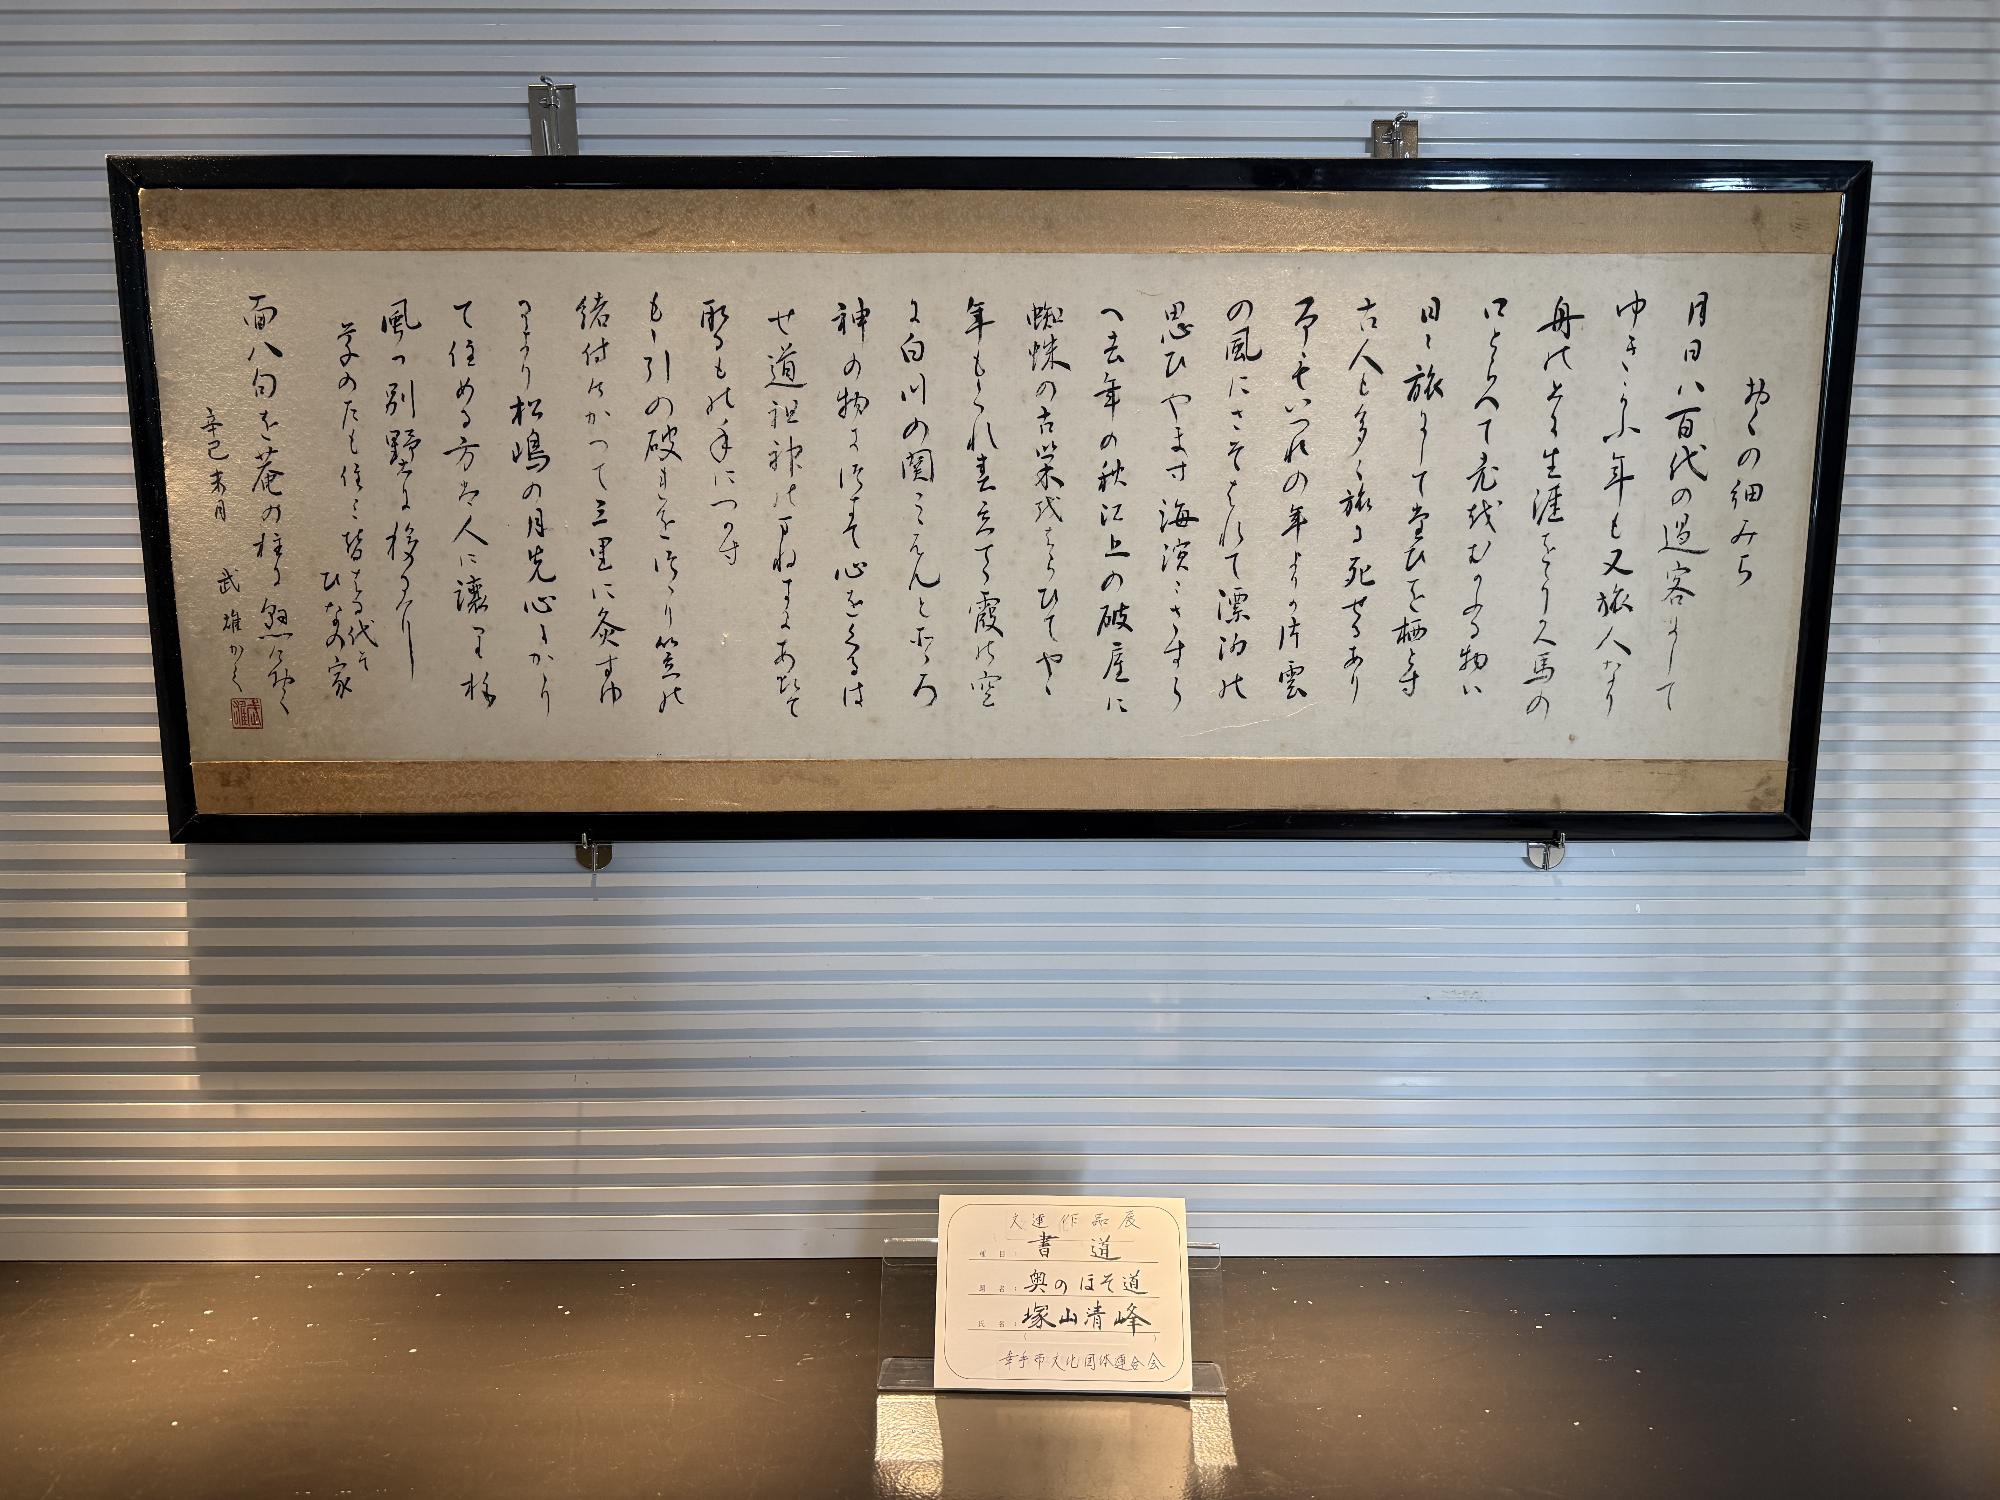 おくの細みち
月日ハ百代の過客にして
ゆきかふ年も又旅人なり
舟の上に生涯をうかへ馬の
口とらへて老をむかふる物ハ
日々旅にして旅を栖とす
古人も多く旅に死せるあり
予もいつれの年よりか片雲
の風にさそはれて漂泊の
思ひやます海濱にさすら
へ去年の秋江上の破屋に
蜘蛛の古巣をはらひてやゝ
年もくれ春立てる霞の空
に白川の関こえんとそゝろ
神の物につきて心をくるは
せ道祖神のまねきにあひて
取るもの手につかす
もゝ引の破をつゝり笠の
緒付けかへて三里に灸すゆ
るより松嶋の月先心にかゝり
て住める方は人に譲り杉
風の別野に移るに
草の戸も住みかはる代そ
ひなの家
面八句を庵の柱に懸け置く
辛巳 末月
武雄かく
文連作品展
種目：書道
題名：奥のほそ道
氏名：塚山清峰
幸手市文化団体連合会